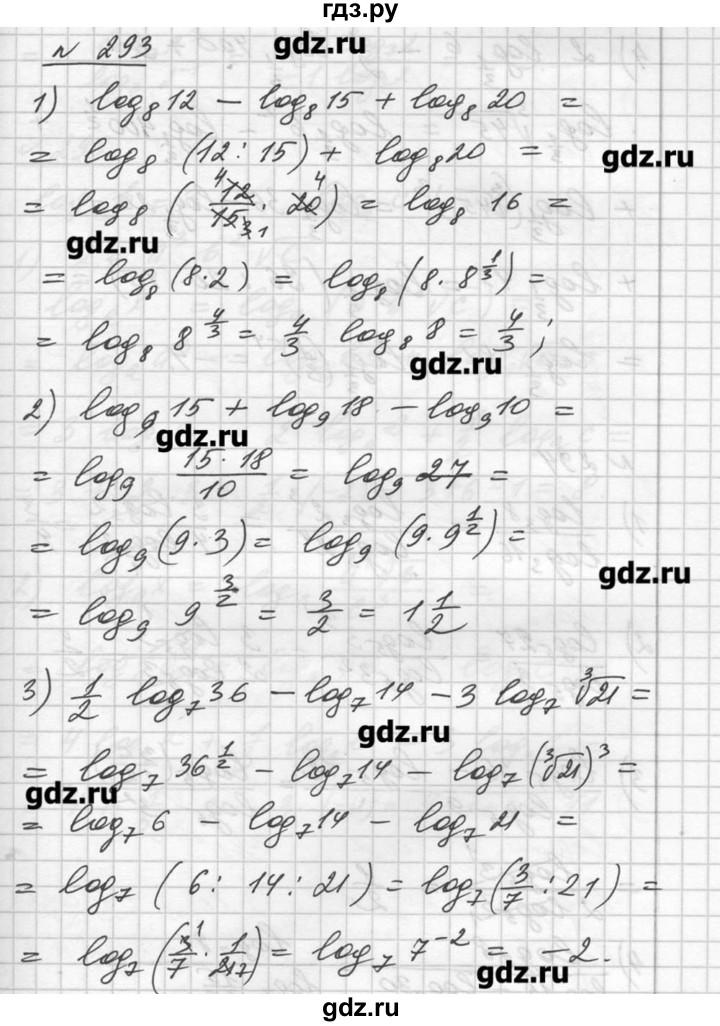 гдз.ру
№ 293
gdz.ru
1) log₈12 − log₈15 + log₈20 =
= log₈ (12 : 15) + log₈20 =
gdz.ru
= log₈ (⁴12/15₃₁ · 20⁴) = log₈ 16 =
gdz.ru
= log₈ (8·2) = log₈ (8·8^(1/3)) =
= log₈ 8^(4/3) = 4/3 log₈ 8 = 4/3 ;
gdz.ru
2) log₉15 + log₉18 − log₉10 =
gdz.ru
= log₉ (15·18)/10 = log₉ 27 =
= log₉ (9·3) = log₉ (9·9^(1/2)) =
gdz.ru
= log₉ 9^(3/2) = 3/2 = 1 1/2
3) 1/2 log₇36 − log₇14 − 3 log₇ ∛21 =
gdz.ru
= log₇ 36^(1/2) − log₇14 − log₇ (∛21)³ =
gdz.ru
= log₇ 6 − log₇14 − log₇ 21 =
= log₇ ( 6 : 14 : 21 ) = log₇ (3/7 : 21) =
= log₇ (3¹/7 · 1/21₇) = log₇ 7⁻² = −2.
gdz.ru
gdz.ru